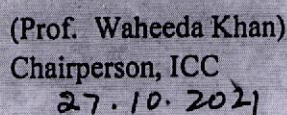 (Prof. Waheeda Khan)
Chairperson, ICC
27.10.2021